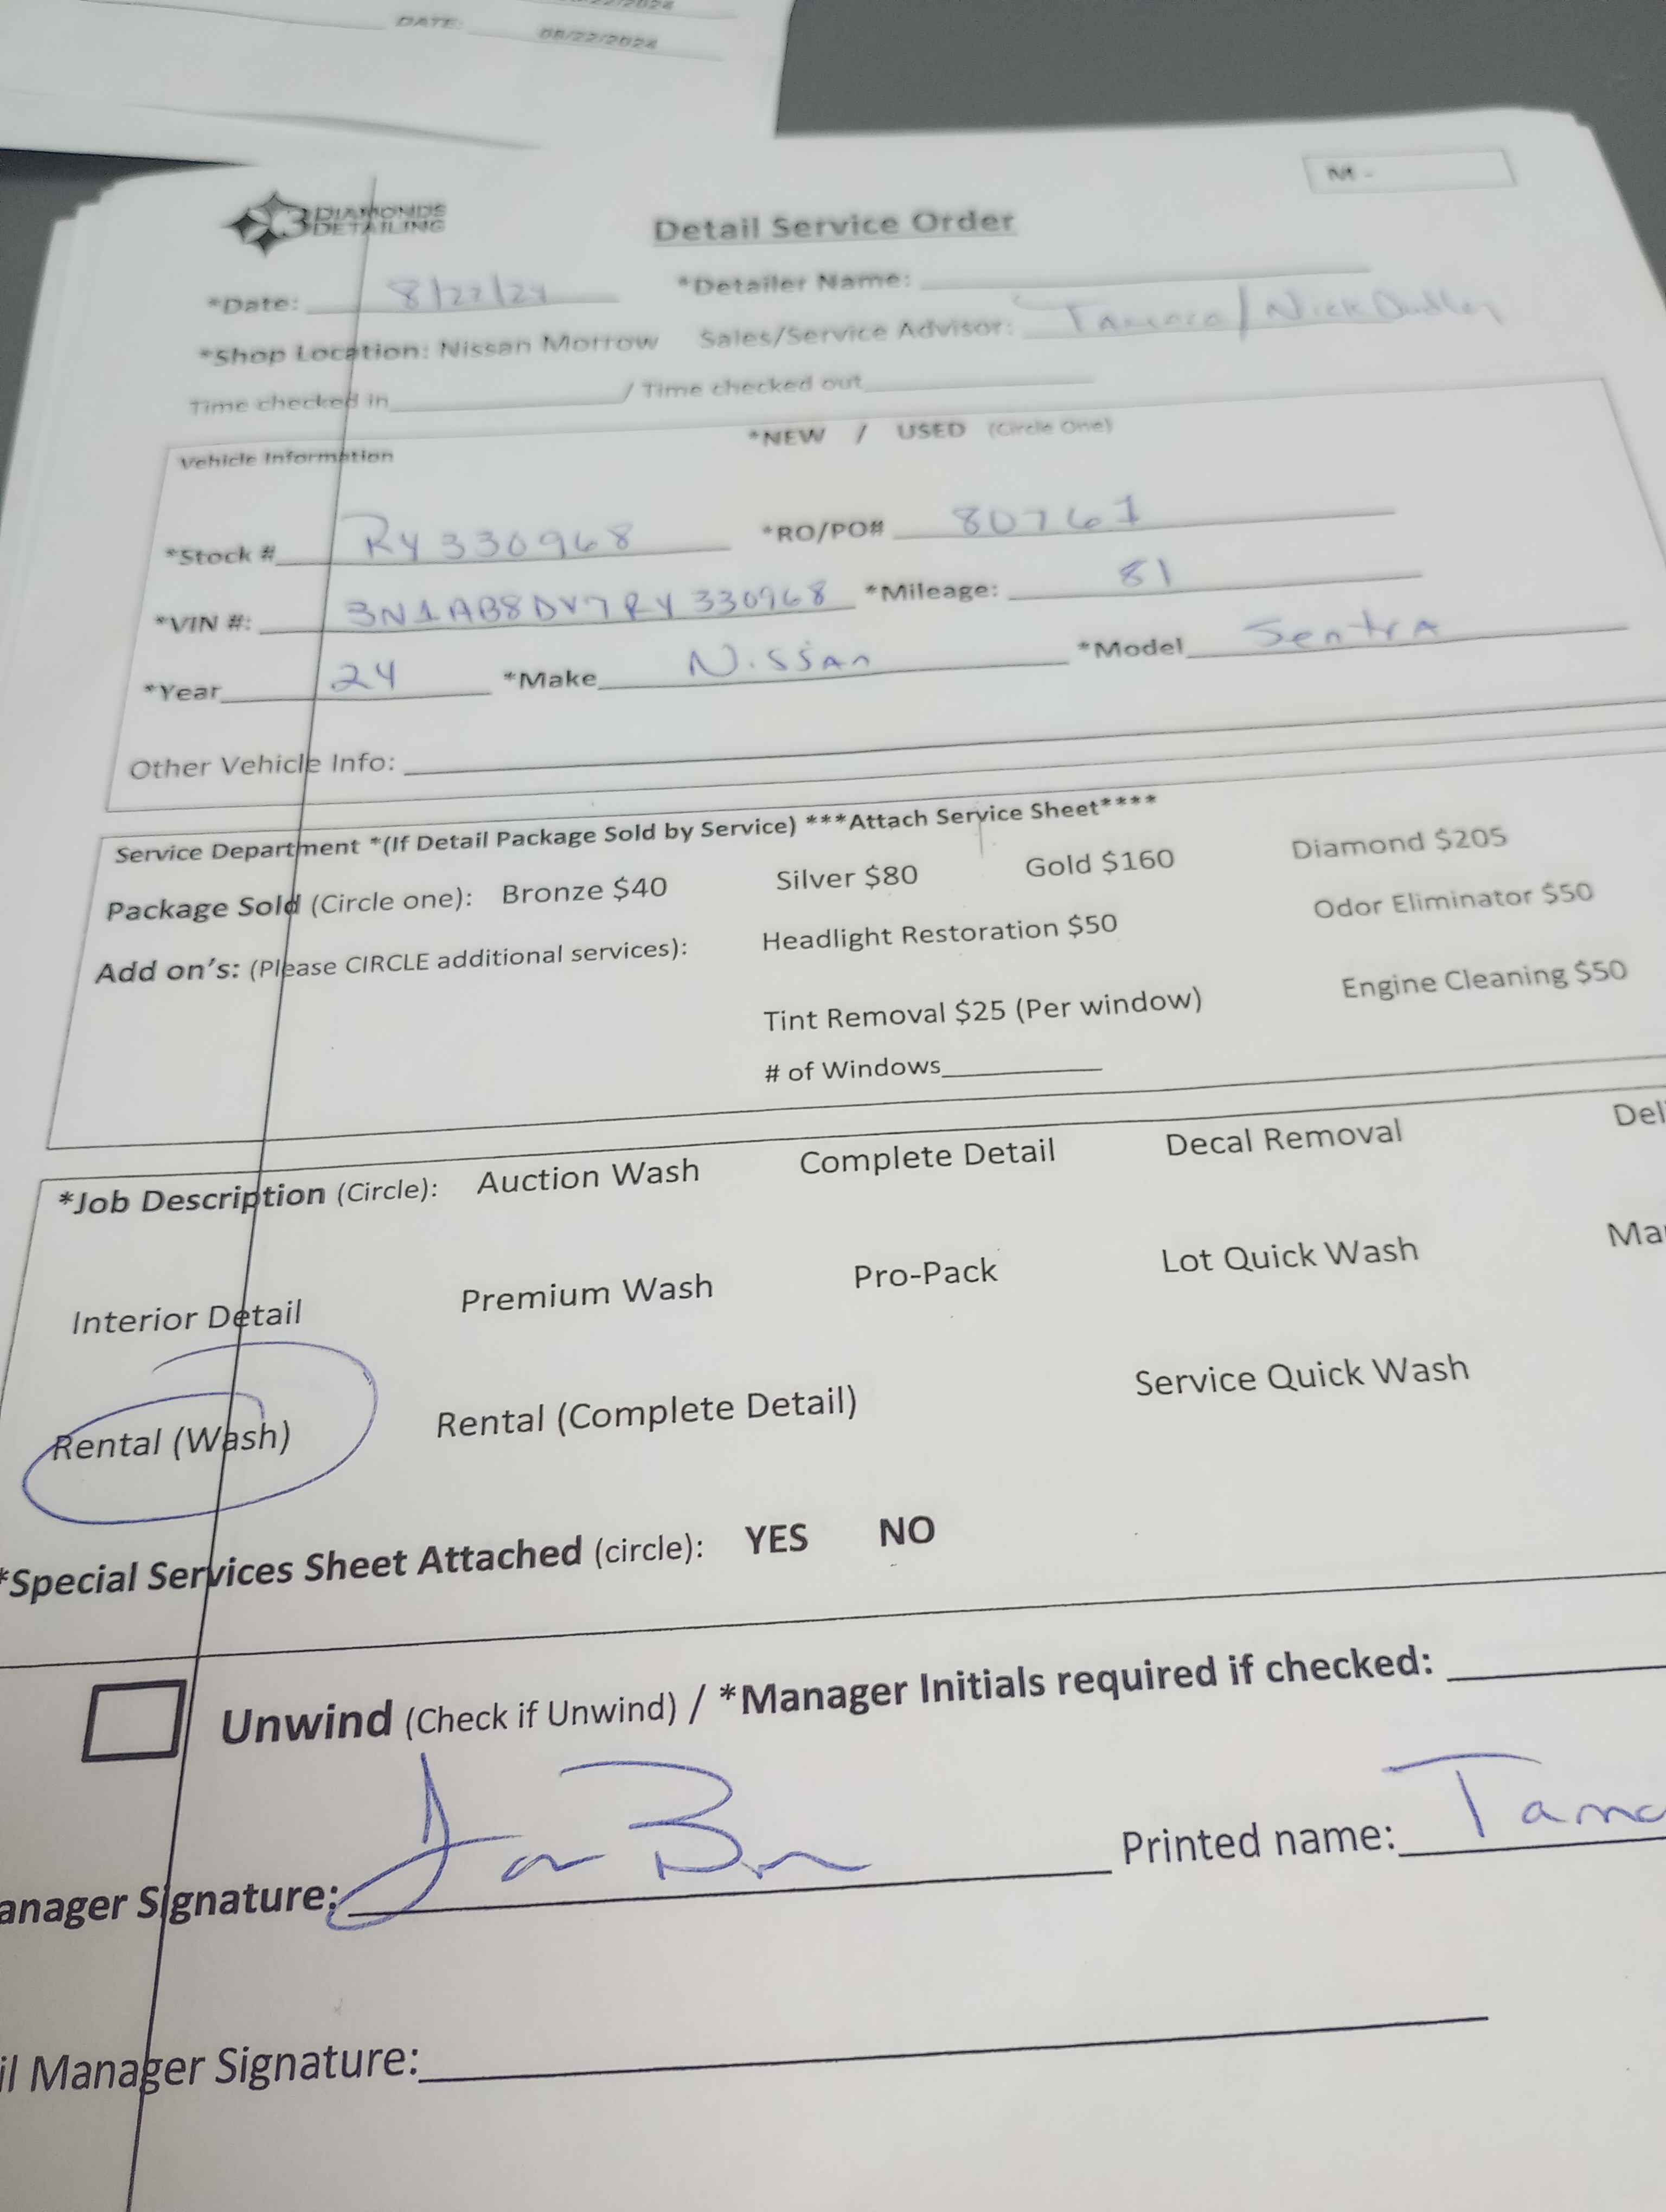 DATE: 08/22/2024
3 DIAMONDS
DETAILING
M -
Detail Service Order
*Date: 8/22/24 *Detailer Name:
*Shop Location: Nissan Morrow Sales/Service Advisor: Tamara / Nick Dudley
Time checked in / Time checked out
Vehicle Information *NEW / USED (Circle One)
*Stock # RY330968 *RO/PO# 80761
*VIN #: 3N1AB8DV7RY330968 *Mileage: 81
*Year 24 *Make Nissan *Model Sentra
Other Vehicle Info:
Service Department *(If Detail Package Sold by Service) ***Attach Service Sheet****
Package Sold (Circle one): Bronze $40 Silver $80 Gold $160 Diamond $205
Add on's: (Please CIRCLE additional services): Headlight Restoration $50 Odor Eliminator $50
Tint Removal $25 (Per window) Engine Cleaning $50
# of Windows
*Job Description (Circle): Auction Wash Complete Detail Decal Removal Del
Interior Detail Premium Wash Pro-Pack Lot Quick Wash Ma
Rental (Wash) Rental (Complete Detail) Service Quick Wash
*Special Services Sheet Attached (circle): YES NO
Unwind (Check if Unwind) / *Manager Initials required if checked:
anager Signature: Printed name: Tama
il Manager Signature: